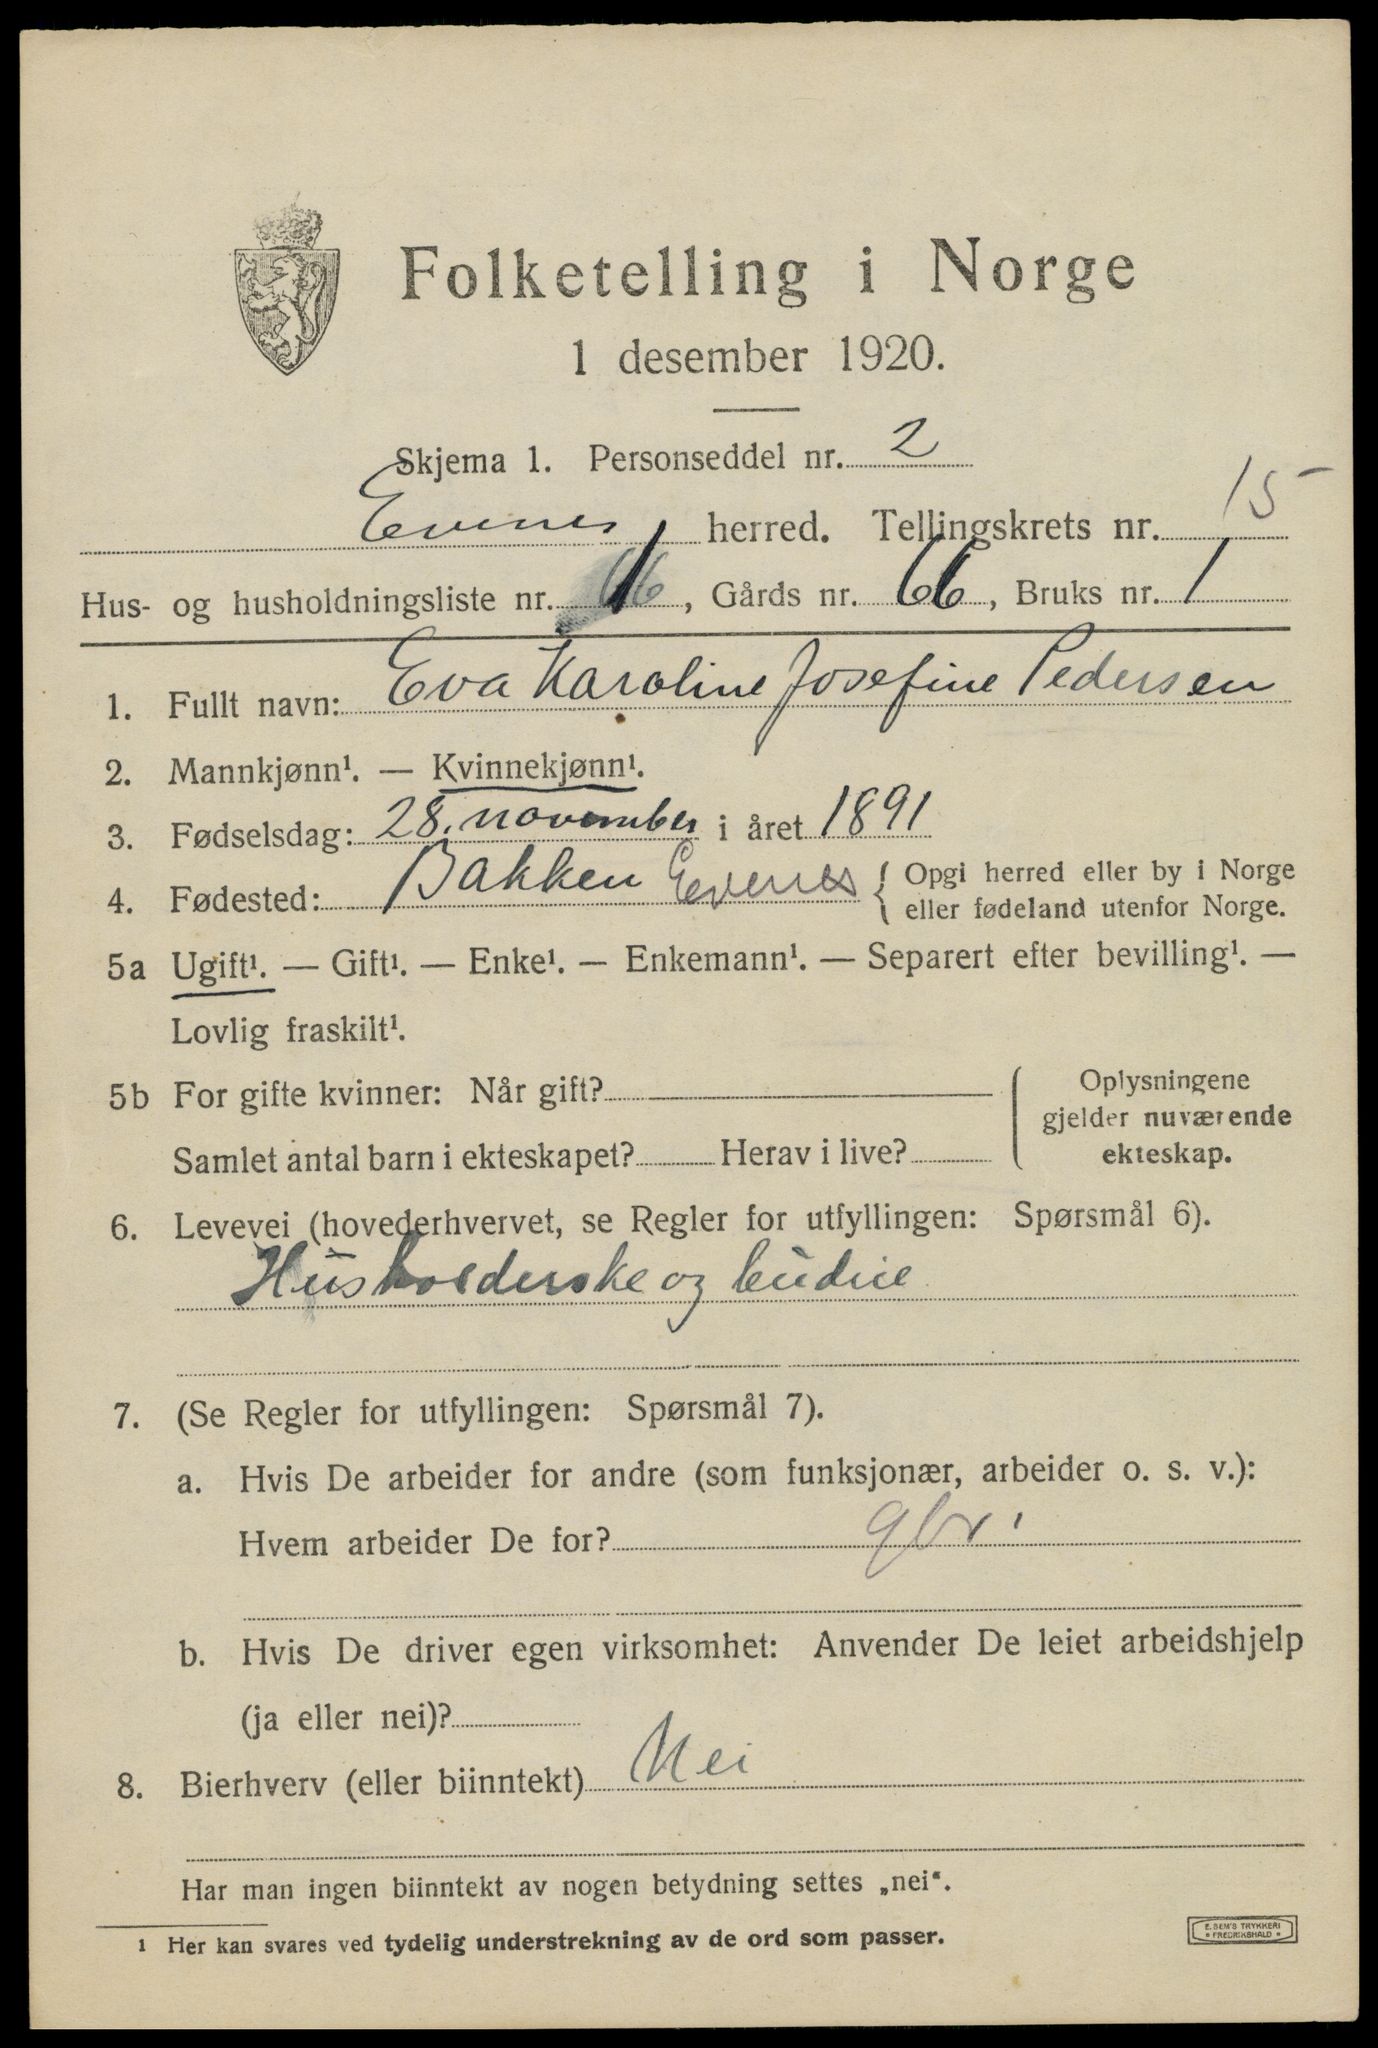 Folketelling i Norge
1 desember 1920.
Skjema 1. Personseddel nr. 2
Evenes herred. Tellingskrets nr. 15
Hus- og husholdningsliste nr. 1, Gårds nr. 66, Bruks nr. 1
1. Fullt navn: Eva Karoline Josefine Pedersen
2. Mannkjønn¹. — Kvinnekjønn¹.
3. Fødselsdag: 28. november i året 1891
4. Fødested: Bakken Evenes { Opgi herred eller by i Norge
eller fødeland utenfor Norge.
5a Ugift¹. — Gift¹. — Enke¹. — Enkemann¹. — Separert efter bevilling¹. —
Lovlig fraskilt¹.
5b For gifte kvinner: Når gift?
Samlet antal barn i ekteskapet? Herav i live?
Oplysningene
gjelder nuværende
ekteskap.
6. Levevei (hovederhvervet, se Regler for utfyllingen: Spørsmål 6).
Husholderske og budeie
7. (Se Regler for utfyllingen: Spørsmål 7).
a. Hvis De arbeider for andre (som funksjonær, arbeider o. s. v.):
Hvem arbeider De for? gbr.
b. Hvis De driver egen virksomhet: Anvender De leiet arbeidshjelp
(ja eller nei)?
8. Bierhverv (eller biinntekt) Nei
Har man ingen biinntekt av nogen betydning settes „nei“.
¹ Her kan svares ved tydelig understrekning av de ord som passer.
E. SEM'S TRYKKERI
FREDRIKSHALD